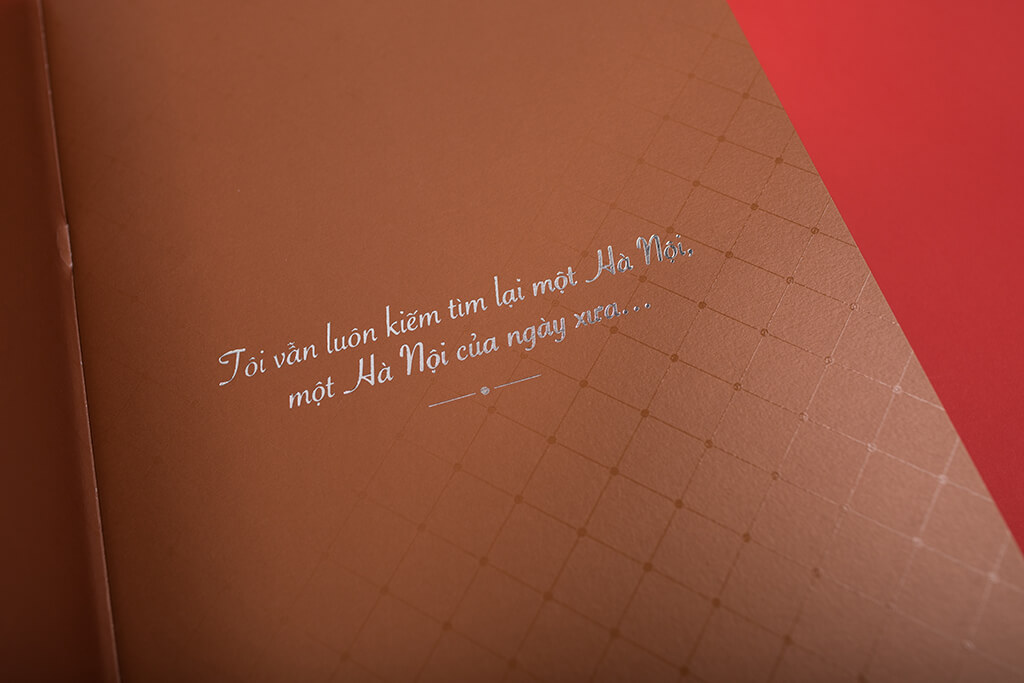 Tôi vẫn luôn kiếm tìm lại một Hà Nội,
một Hà Nội của ngày xưa...